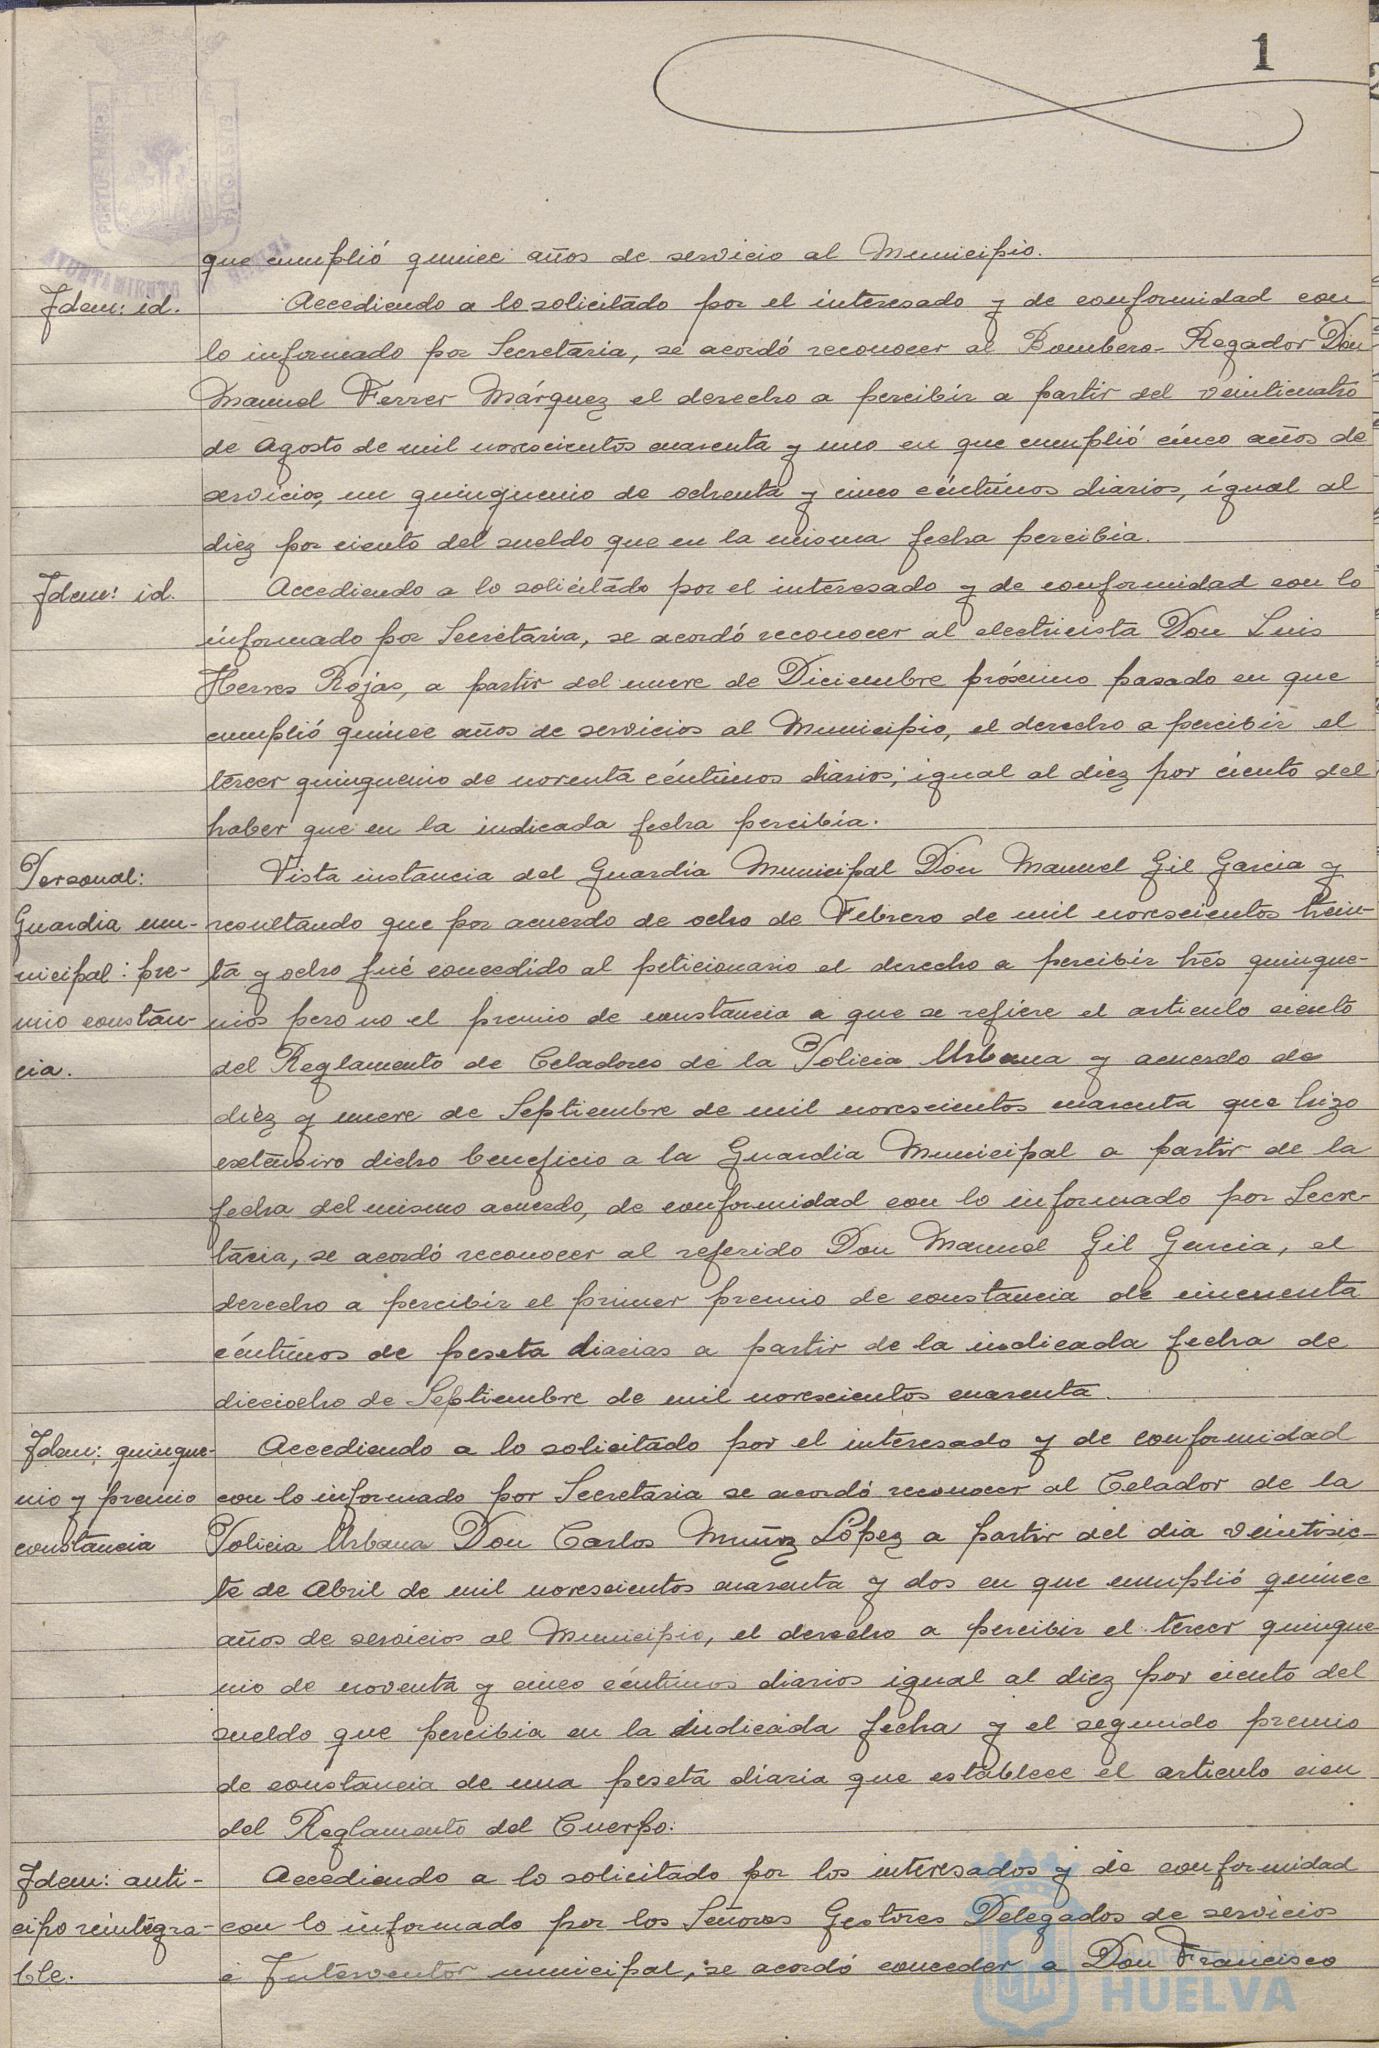 1
PORTUS MARIS
AYUNTAMIENTO DE HUELVA
que cumplió quince años de servicio al Municipio.
Idem: id.
Accediendo a lo solicitado por el interesado y de conformidad con
lo informado por Secretaria, se acordó reconocer al Bombero-Regador Don
Manuel Ferrer Márquez el derecho a percibir a partir del veinticuatro
de Agosto de mil novescientos cuarenta y uno en que cumplió cinco años de
servicios, un quinquenio de ochenta y cinco céntimos diarios, igual al
diez por ciento del sueldo que en la misma fecha percibia.
Idem: id.
Accediendo a lo solicitado por el interesado y de conformidad con lo
informado por Secretaria, se acordó reconocer al electricista Don Luis
Herves Rojas, a partir del nueve de Diciembre próximo pasado en que
cumplió quince años de servicios al Municipio, el derecho a percibir el
tercer quinquenio de noventa céntimos diarios; igual al diez por ciento del
haber que en la indicada fecha percibia.
Personal:
Guardia mu-
nicipal: pre-
mio constan-
cia.
Vista instancia del Guardia Municipal Don Manuel Gil Garcia y
resultando que por acuerdo de ocho de Febrero de mil novescientos trein-
ta y ocho fué concedido al peticionario el derecho a percibir tres quinque-
nios pero no el premio de constancia a que se refiere el articulo ciento
del Reglamento de Celadores de la Policia Urbana y acuerdo de
diez y nueve de Septiembre de mil novescientos cuarenta que hizo
extensivo dicho beneficio a la Guardia Municipal a partir de la
fecha del mismo acuerdo, de conformidad con lo informado por Secre-
taria, se acordó reconocer al referido Don Manuel Gil Garcia, el
derecho a percibir el primer premio de constancia de cincuenta
céntimos de peseta diarias a partir de la indicada fecha de
dieciocho de Septiembre de mil novescientos cuarenta.
Idem: quinque-
nio y premio
constancia
Accediendo a lo solicitado por el interesado y de conformidad
con lo informado por Secretaria se acordó reconocer al Celador de la
Policia Urbana Don Carlos Muñoz López a partir del dia veintisie-
te de Abril de mil novescientos cuarenta y dos en que cumplió quince
años de servicios al Municipio, el derecho a percibir el tercer quinque
nio de noventa y cinco céntimos diarios igual al diez por ciento del
sueldo que percibia en la indicada fecha y el segundo premio
de constancia de una peseta diaria que establece el articulo cien
del Reglamento del Cuerpo.
Idem: anti-
cipo reintegra-
ble.
Accediendo a lo solicitado por los interesados y de conformidad
con lo informado por los Señores Gestores Delegados de servicios
e Interventor municipal, se acordó conceder a Don Francisco
Ayuntamiento de
HUELVA